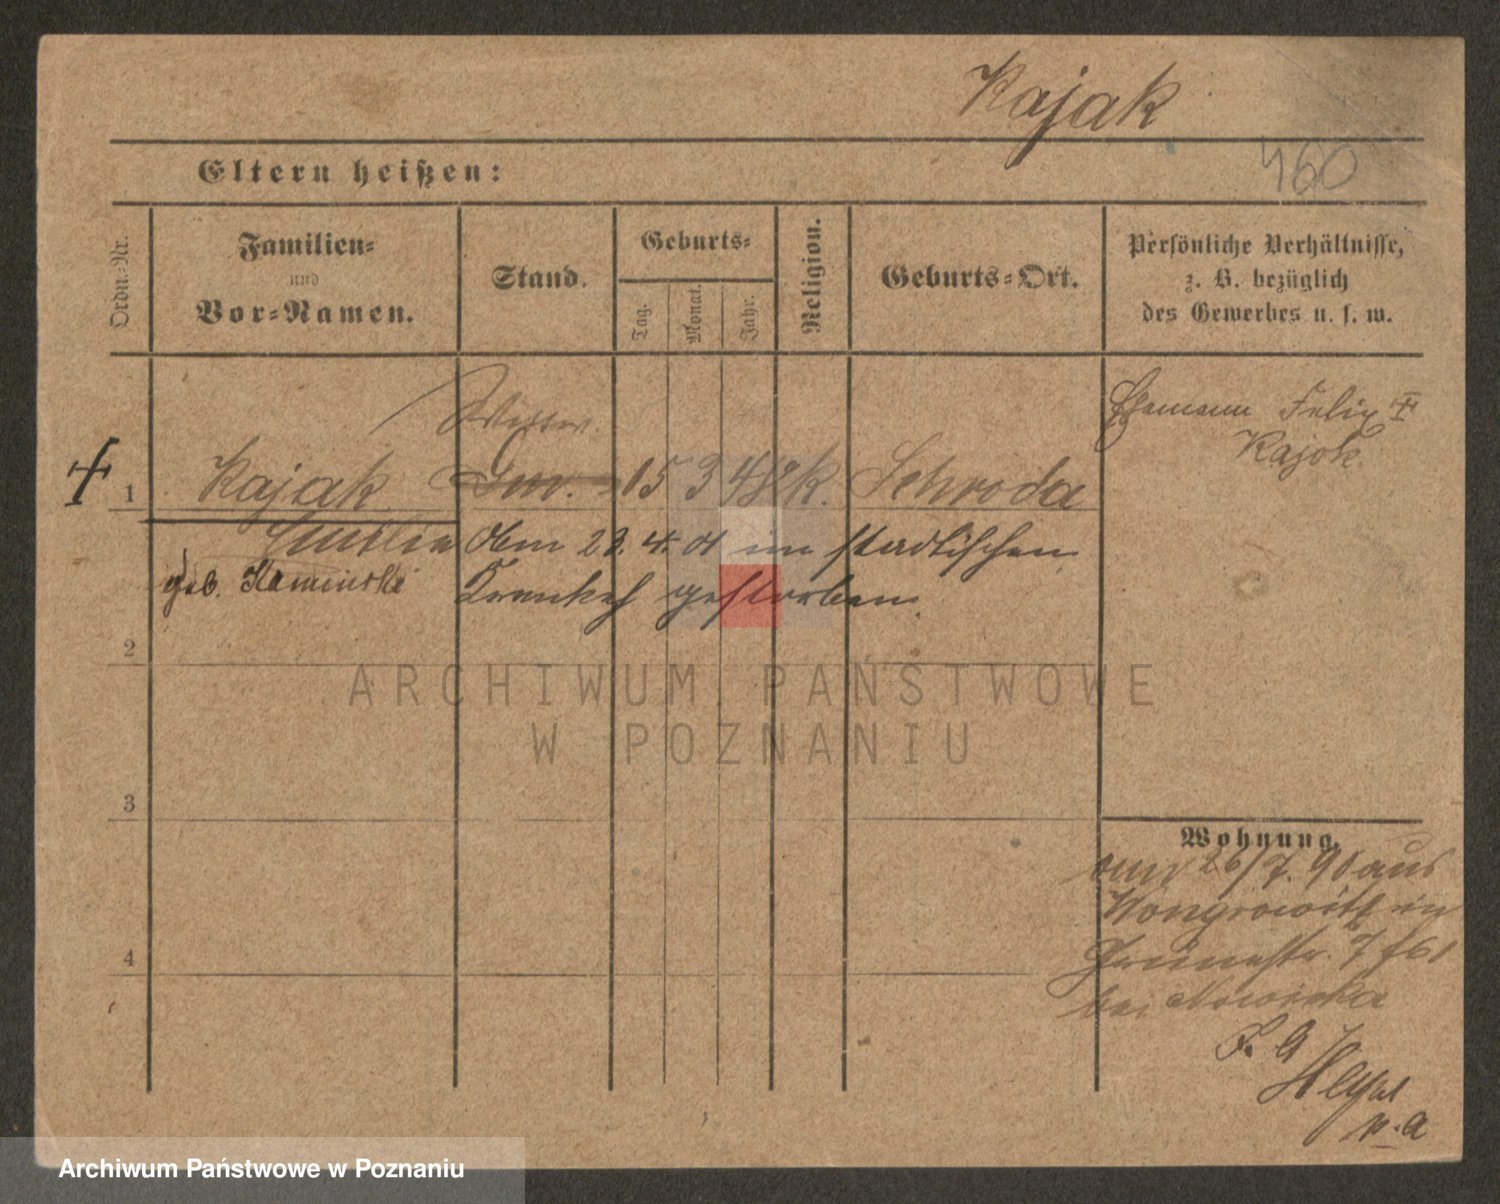 Kajak
460
Eltern heißen:
Ordn.-Nr.
Familien-
und
Vor-Namen.
Stand.
Geburts-
Tag.
Monat.
Jahr.
Religion.
Geburts-Ort.
Persönliche Verhältnisse,
z. B. bezüglich
des Gewerbes u. s. w.
Wittw.
Ehemann Felix †
Kajak
† 1 Kajak 15 3 48 k. Schroda
Emilie Am 29. 4. 01 im städtischen
geb. Kaminski Krankh gestorben.
2
ARCHIWUM PAŃSTWOWE
W POZNANIU
3
Wohnung.
26/7. 90 aus
Wongrowitz in
4
Grünestr. 7
bei Nowicka
F. G
p. a
Archiwum Państwowe w Poznaniu